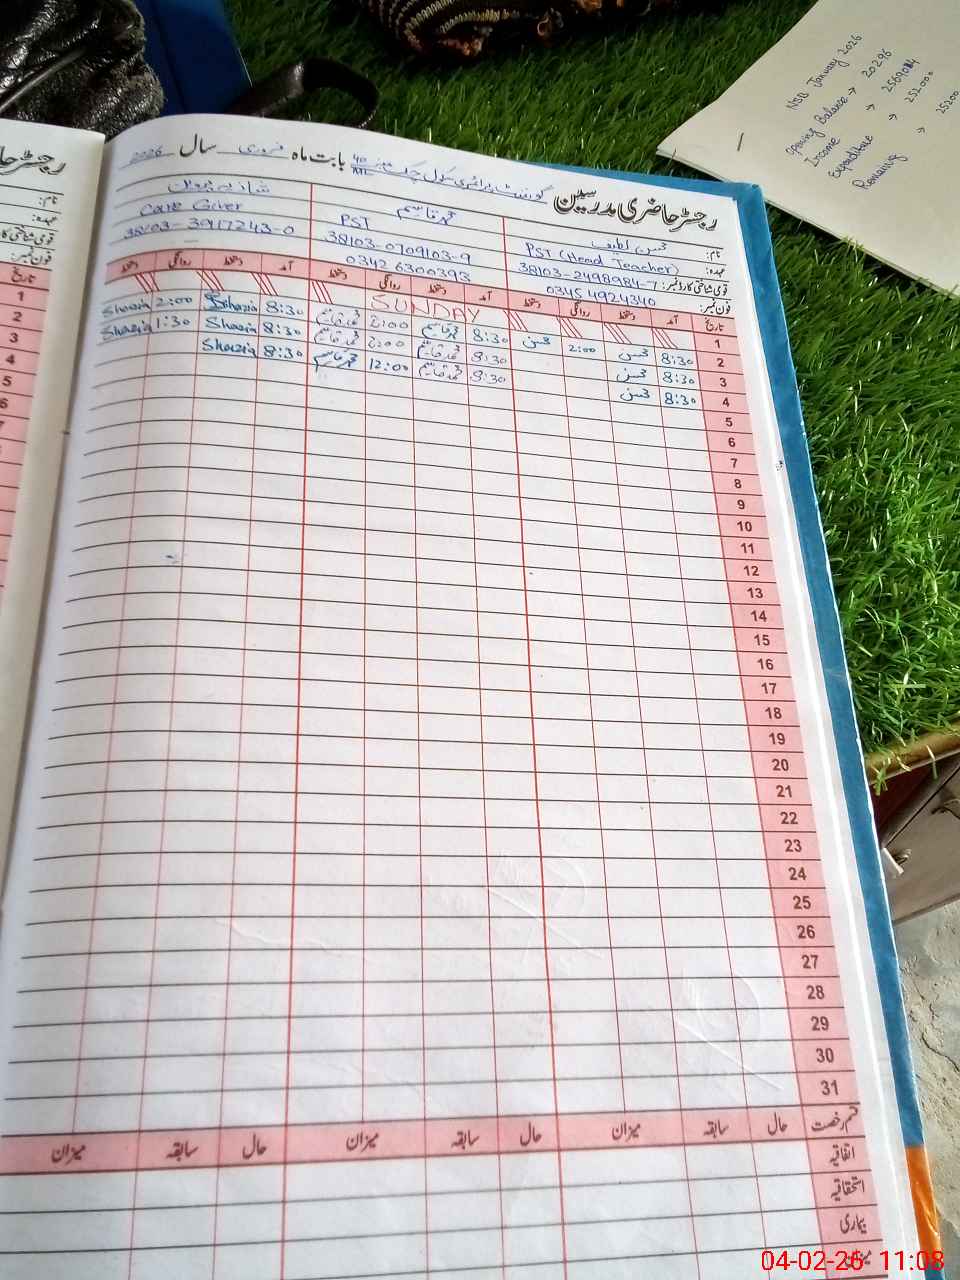 رجسٹر حاضری مدرسین گورنمنٹ پرائمری سکول چک نمبر 40/ML بابت ماہ فروری سال 2026
نام: محسن لطیف محمد قاسم شازیہ پروین
عہدہ: PST (Head Teacher) PST Care Giver
قومی شناختی کارڈ نمبر: 38103-2498984-7 38103-0709103-9 38103-3917243-0
فون نمبر: 0345 4924340 0342 6300393
تاریخ آمد دستخط روانگی دستخط آمد دستخط روانگی دستخط آمد دستخط روانگی دستخط
1 SUNDAY
2 8:30 محسن 2:00 محسن 8:30 محمد قاسم 2:00 محمد قاسم 8:30 Shazia 2:00 Shazia
3 8:30 محسن 8:30 محمد قاسم 2:00 محمد قاسم 8:30 Shazia 1:30 Shazia
4 8:30 محسن 8:30 محمد قاسم 12:00 محمد قاسم 8:30 Shazia
5
6
7
8
9
10
11
12
13
14
15
16
17
18
19
20
21
22
23
24
25
26
27
28
29
30
31
قسم رخصت حال سابقہ میزان حال سابقہ میزان حال سابقہ میزان
اتفاقیہ
استحقاقیہ
بیماری
میزان
رجسٹر حا
نام:
عہدہ:
قومی شناختی کا
فون نمبر:
تاریخ
1
2
3
4
5
6
NSB January 2026
Opening Balance → 20296
Income → 2569084
Expenditure → 252000
Remaining → 25200
04-02-26 11:08